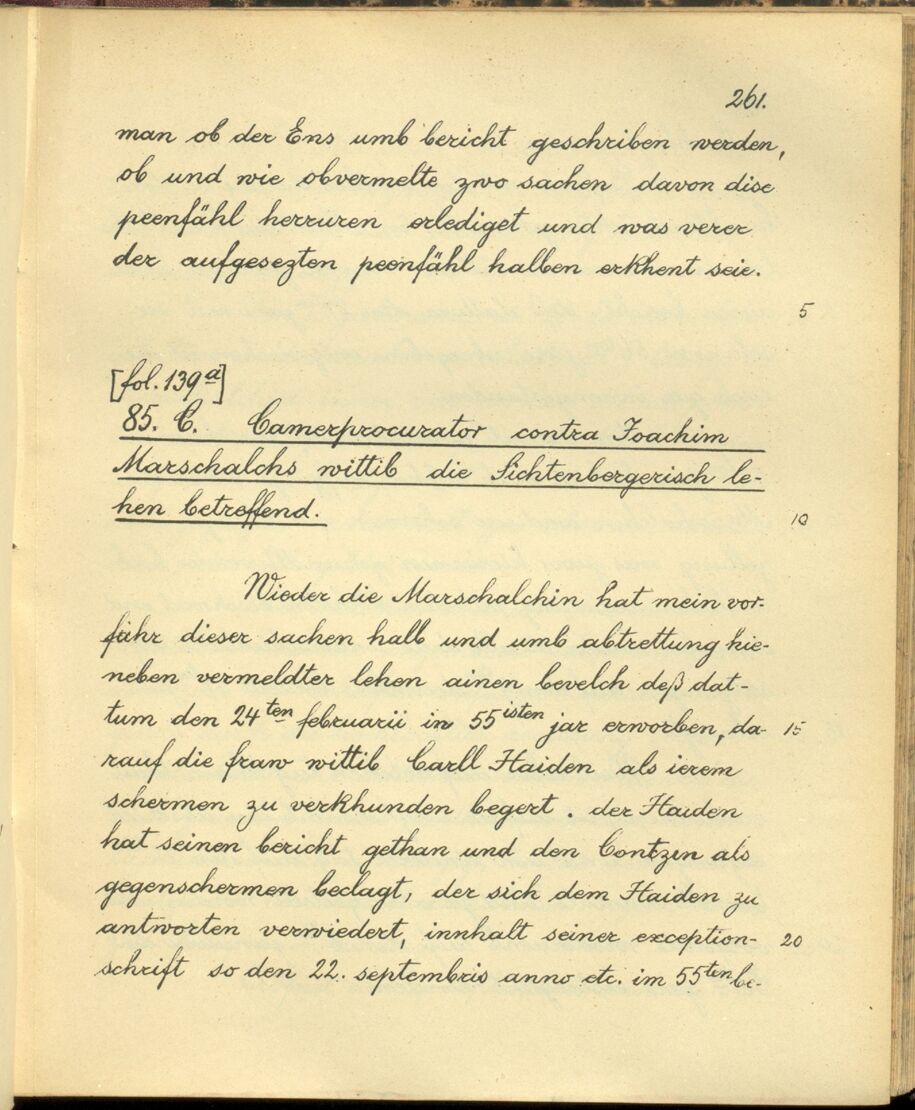 261.
man ob der Ens umb bericht geschriben werden,
ob und wie obvermelte zwo sachen davon dise
peenfähl herruren erlediget und was verer
der aufgesezten peenfähl halben erkhent seie.
5
[fol. 139a]
85. C. Camerprocurator contra Joachim
Marschalchs wittib die Lichtenbergerisch le-
hen betreffend.
10
Wieder die Marschalchin hat mein vor-
fahr dieser sachen halb und umb abtrettung hie-
neben vermeldter lehen ainen bevelch deß dat-
tum den 24ten februarii in 55isten jar erworben, da- 15
rauf die fraw wittib Carll Haiden als ierem
schermen zu verkhunden begert. der Haiden
hat seinen bericht gethan und den Contzen als
gegenschermen beclagt, der sich dem Haiden zu
antworten verwiedert, innhalt seiner exception- 20
schrift so den 22. septembris anno etc. im 55ten be-